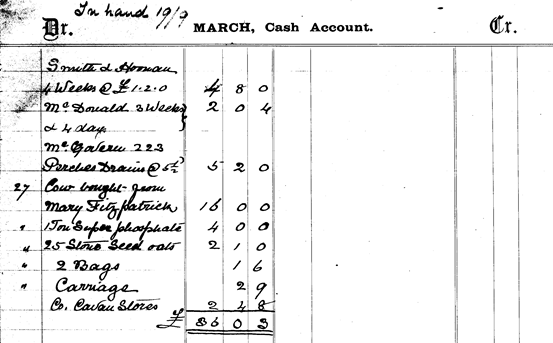 In hand 19/9
Dr. MARCH, Cash Account. Cr.
Smith & Hoonan
4 Weeks @ £1.2.0 4 8 0
McDonald 3 Weeks } 2 0 4
& 4 days
McGovern 223
Perches Drains @ 5½ 5 2 0
27 Cow bought from
Mary Fitzpatrick 16 0 0
" 1 Ton Superphosphate 4 0 0
" 25 Stone Seed oats 2 1 0
" 2 Bags 1 6
" Carriage 2 9
Co. Cavan Stores 2 4 8
£ 36 0 3